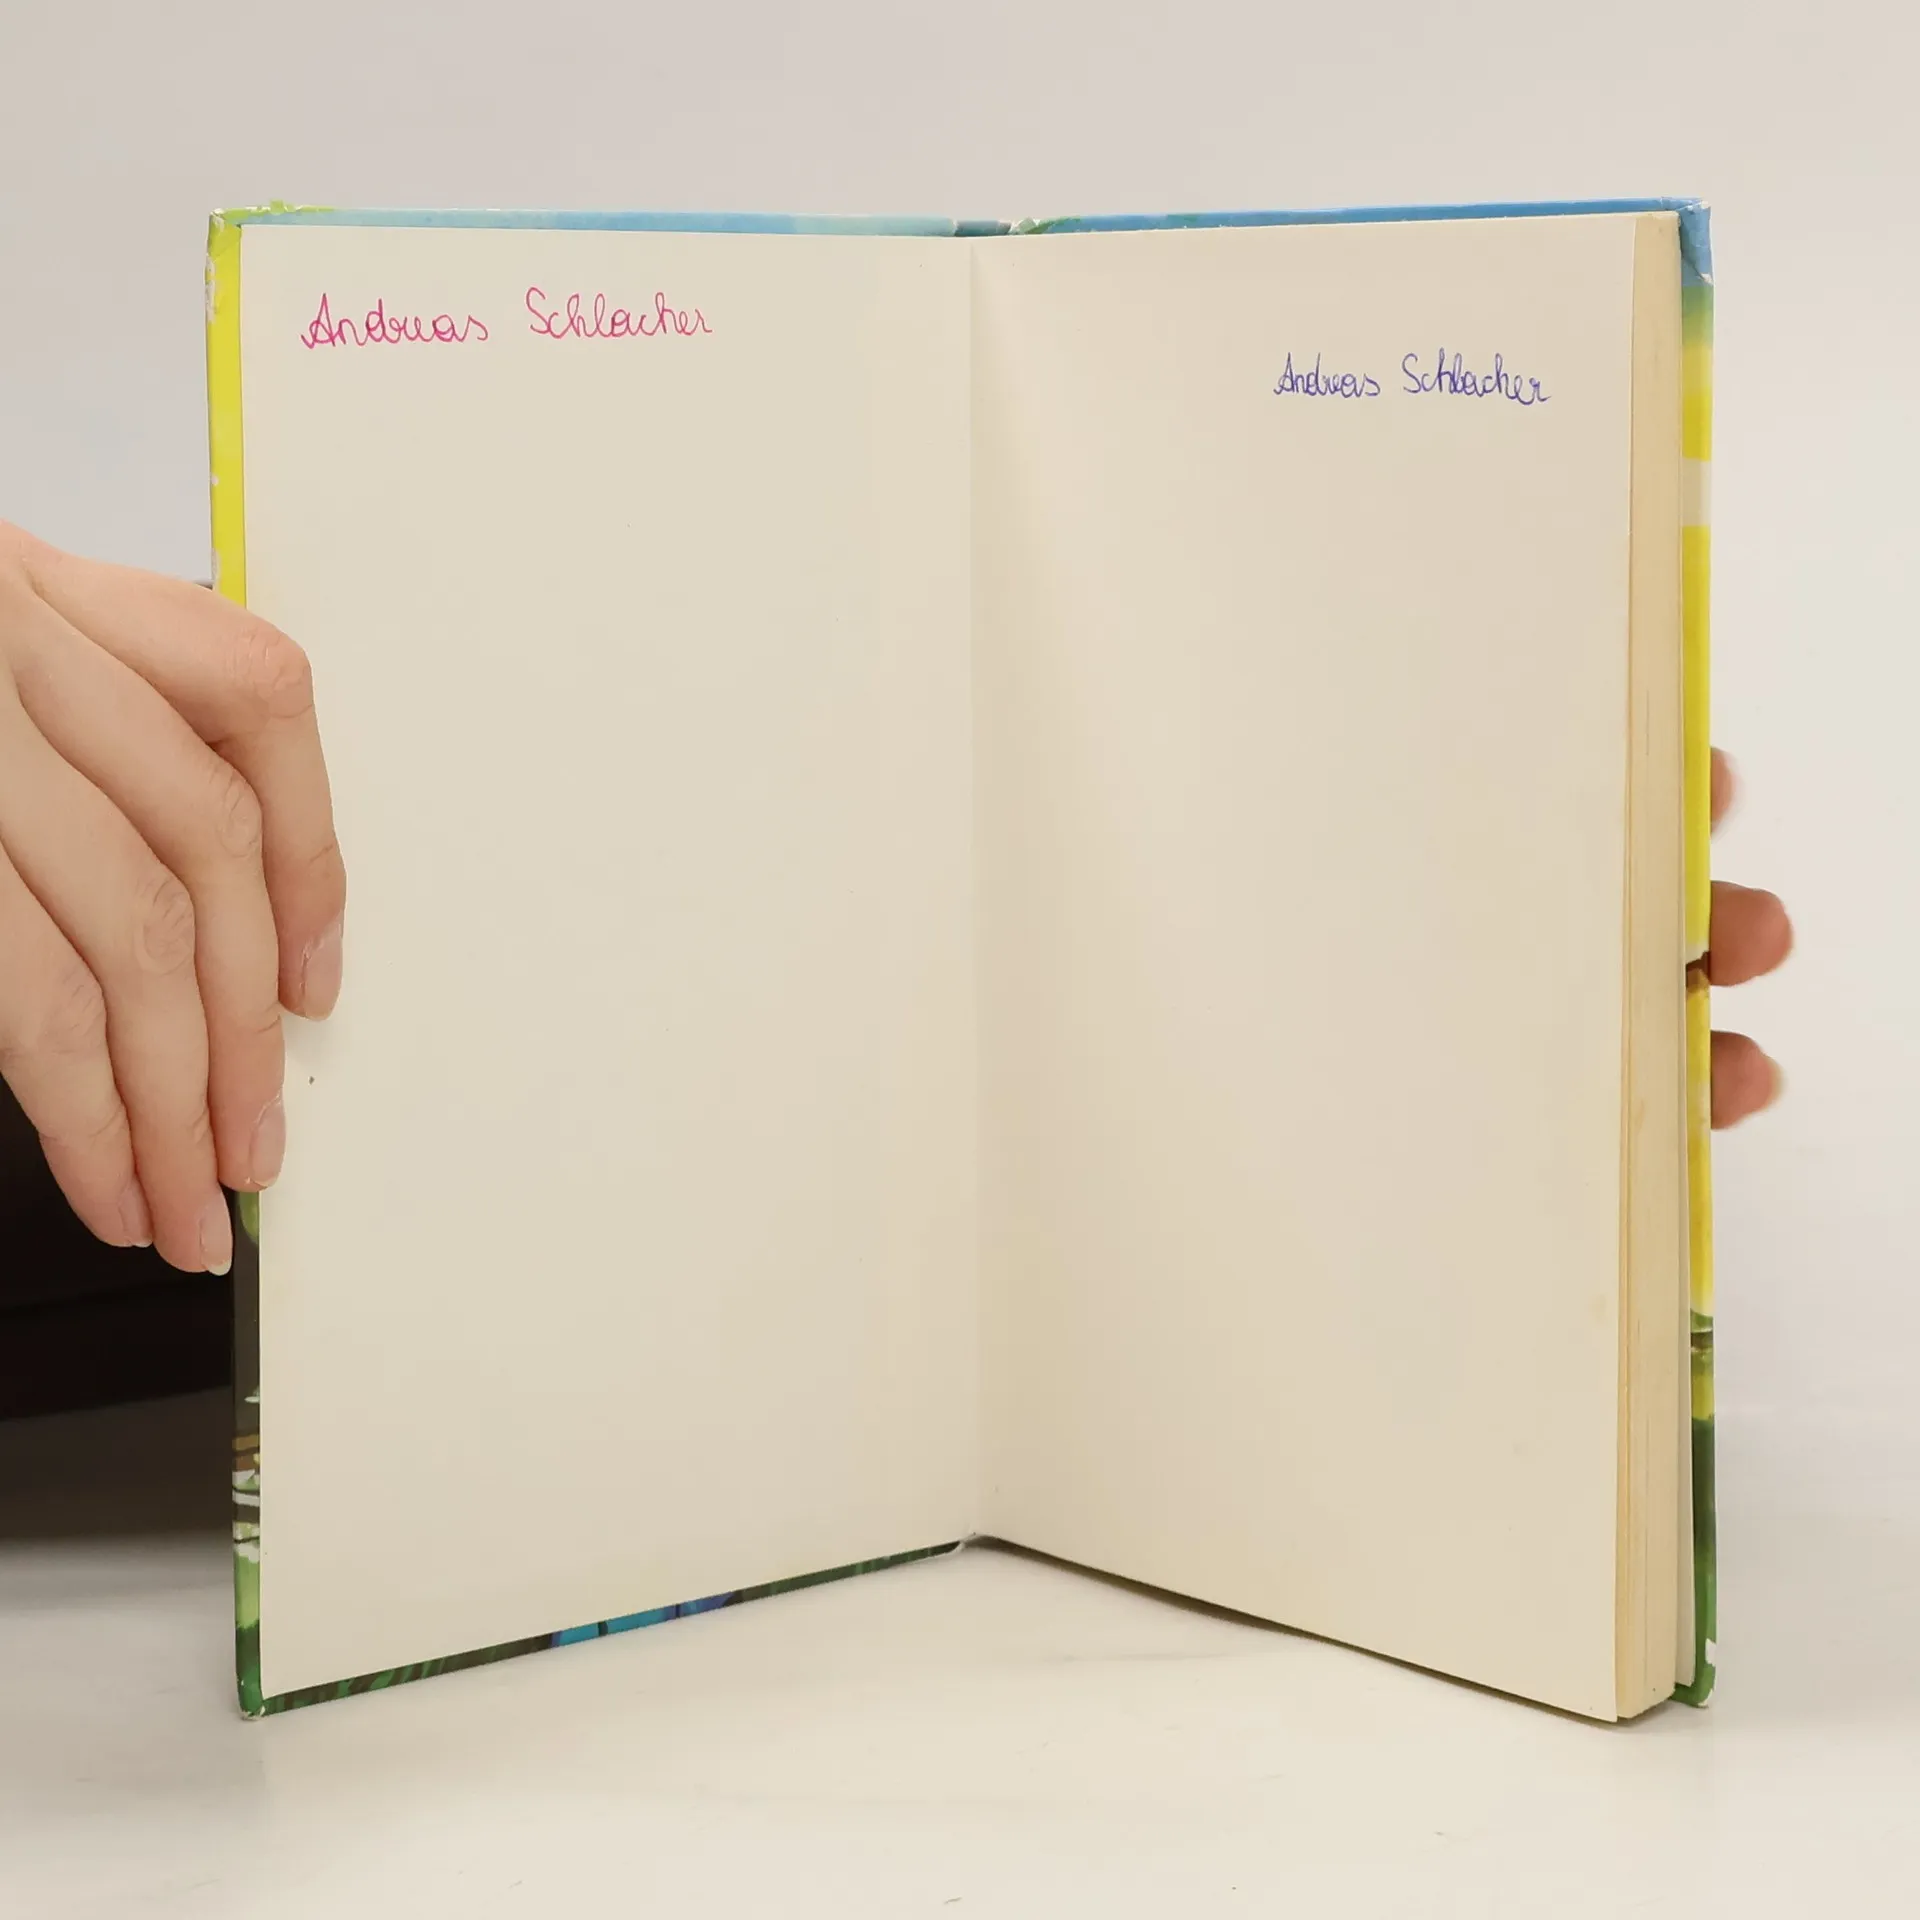 Andreas Schlacher
Andreas Schlacher